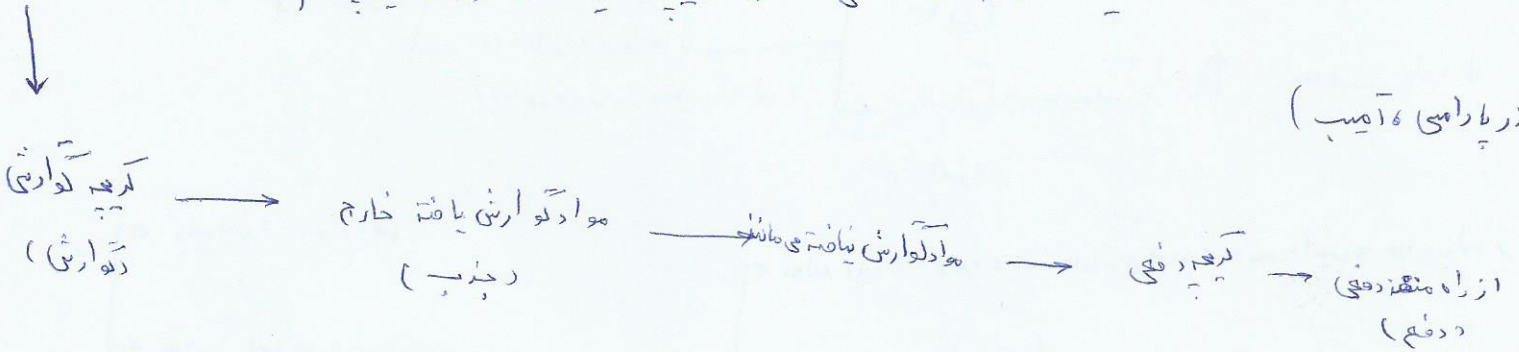 در پارامسی و آمیب)
کریچه گوارشی → مواد گوارش یافته خارج → مواد گوارش نیافته می‌مانند → کریچه دفعی → از راه منفذ دفعی
(گوارش) (جذب) (دفع)